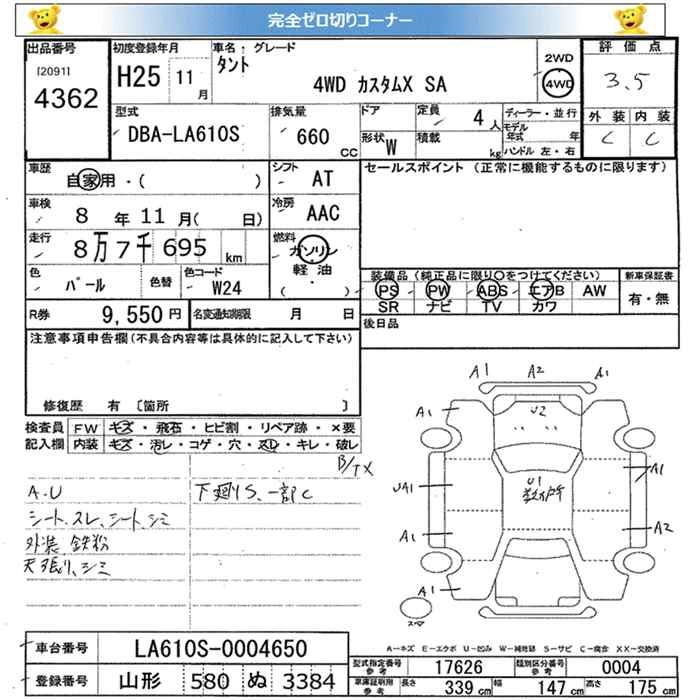 完全ゼロ切りコーナー
出品番号
[2091]
4362
初度登録年月
H25 11 月
車名・グレード
タント
4WD カスタムX SA
2WD
4WD
評価点
3.5
外装 内装
C C
型式
DBA-LA610S
排気量
660 CC
ドア
形状 W
定員 4 人
積載 kg
ディーラー・並行
モデル年式 年
ハンドル 左・右
車歴
自家用・( )
シフト
AT
セールスポイント (正常に機能するものに限ります)
車検
8 年 11 月( 日)
冷房
AAC
走行
8万7千695 km
燃料
ガソリン
軽油
( ・ )
色
パール
色替
色コード
W24
装備品 (純正品に限り○をつけてください)
PS PW ABS エアB AW
SR ナビ TV カワ
新車保証書
有・無
R券 9,550 円
名変通知期限 月 日
後日品
注意事項申告欄(不具合内容等は具体的に記入して下さい)
修復歴 有 〔箇所 〕
検査員記入欄
FW キズ・飛石・ヒビ割・リペア跡・×要
内装 キズ・汚レ・コゲ・穴・スレ・キレ・破レ
B/TX
A.U
シート.スレ、シート、シミ
外装 鉄粉
天張り、シミ
下廻りS、一部C
A1 A2 A1
A1 U2
UA1 U1 A1
A1 A2
A1
A-キズ E-エクボ U-凹み W-補修跡 S-サビ C-腐食 XX-交換済
車台番号 LA610S-0004650
登録番号 山形 580 ぬ 3384
型式指定番号 参考 17626
類別区分番号 参考 0004
車庫証明用 参考 長さ 339 cm 幅 147 cm 高さ 175 cm